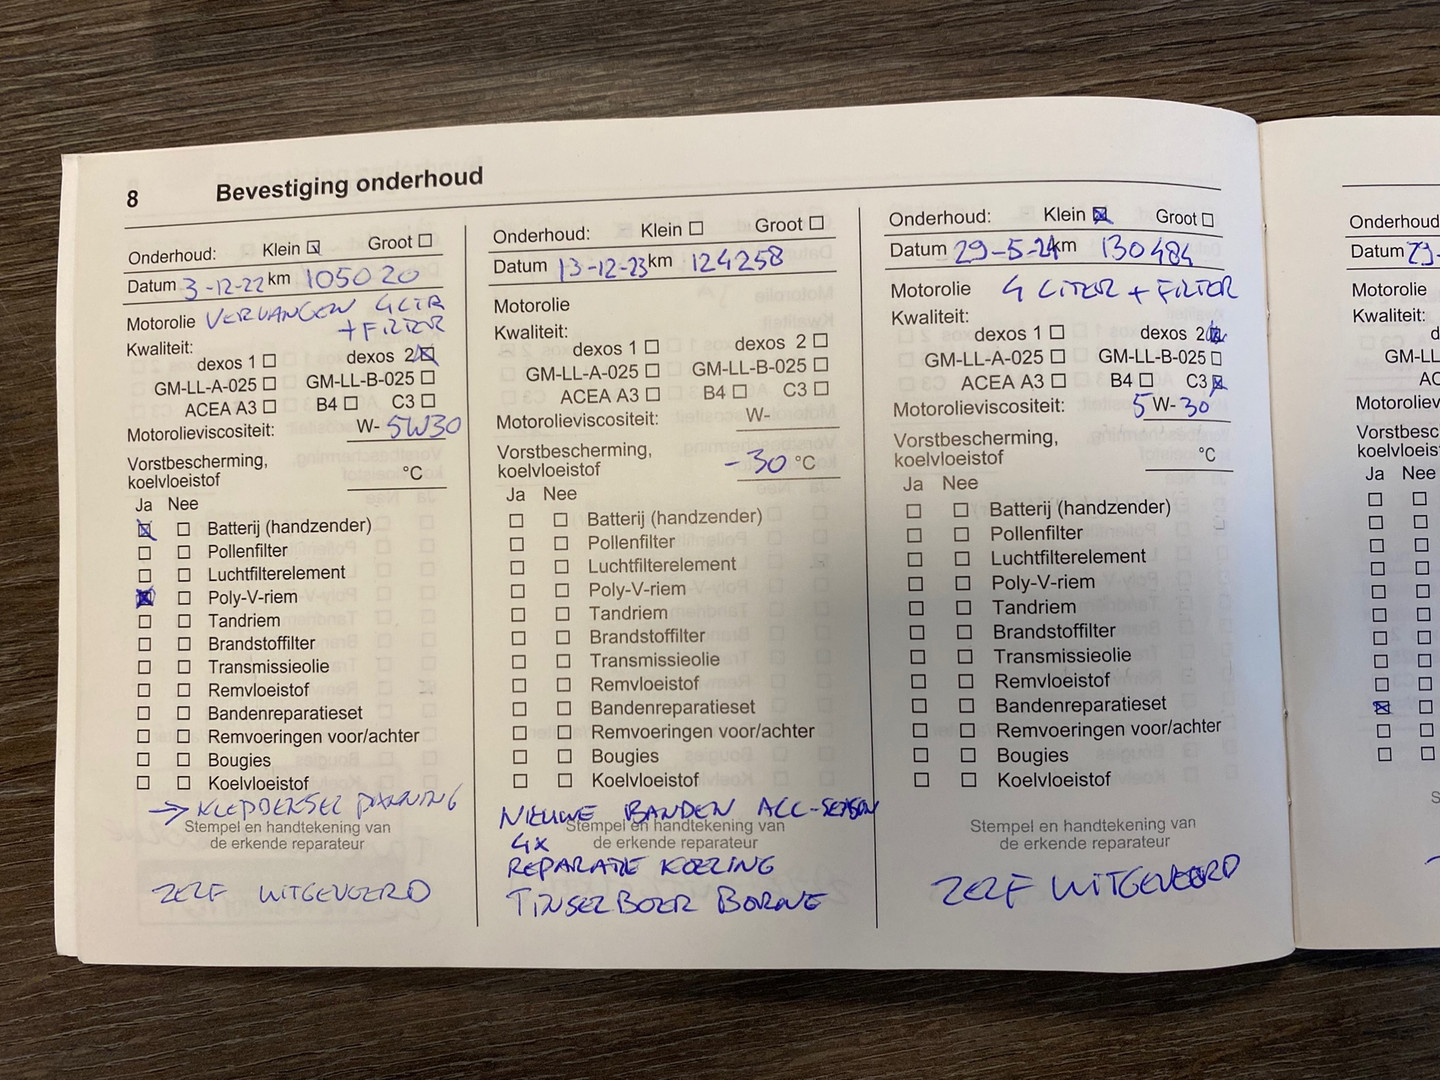 8 Bevestiging onderhoud
Onderhoud: Klein Groot
Datum 3-12-22 km 105020
Motorolie VERVANGEN 4 LTR
+ FILTER
Kwaliteit:
dexos 1 dexos 2
GM-LL-A-025 GM-LL-B-025
ACEA A3 B4 C3
Motorolieviscositeit: W- 5W30
Vorstbescherming,
koelvloeistof °C
Ja Nee
Batterij (handzender)
Pollenfilter
Luchtfilterelement
Poly-V-riem
Tandriem
Brandstoffilter
Transmissieolie
Remvloeistof
Bandenreparatieset
Remvoeringen voor/achter
Bougies
Koelvloeistof
→ KLEPDEKSEL PAKKING
Stempel en handtekening van
de erkende reparateur
ZELF UITGEVOERD
Onderhoud: Klein Groot
Datum 13-12-23 km 124258
Motorolie
Kwaliteit:
dexos 1 dexos 2
GM-LL-A-025 GM-LL-B-025
ACEA A3 B4 C3
Motorolieviscositeit: W-
Vorstbescherming,
koelvloeistof -30 °C
Ja Nee
Batterij (handzender)
Pollenfilter
Luchtfilterelement
Poly-V-riem
Tandriem
Brandstoffilter
Transmissieolie
Remvloeistof
Bandenreparatieset
Remvoeringen voor/achter
Bougies
Koelvloeistof
NIEUWE BANDEN ALL-SEASON
Stempel en handtekening van
4x de erkende reparateur
REPARATIE KOELING
TINSELBOER BORNE
Onderhoud: Klein Groot
Datum 29-5-24 km 130484
Motorolie 4 LITER + FILTER
Kwaliteit:
dexos 1 dexos 2
GM-LL-A-025 GM-LL-B-025
ACEA A3 B4 C3
Motorolieviscositeit: 5 W- 30
Vorstbescherming,
koelvloeistof °C
Ja Nee
Batterij (handzender)
Pollenfilter
Luchtfilterelement
Poly-V-riem
Tandriem
Brandstoffilter
Transmissieolie
Remvloeistof
Bandenreparatieset
Remvoeringen voor/achter
Bougies
Koelvloeistof
Stempel en handtekening van
de erkende reparateur
ZELF UITGEVOERD
Onderhoud
Datum
Motorolie
Kwaliteit:
GM-LL
Motoroliev
Vorstbesc
koelvloeis
Ja Nee